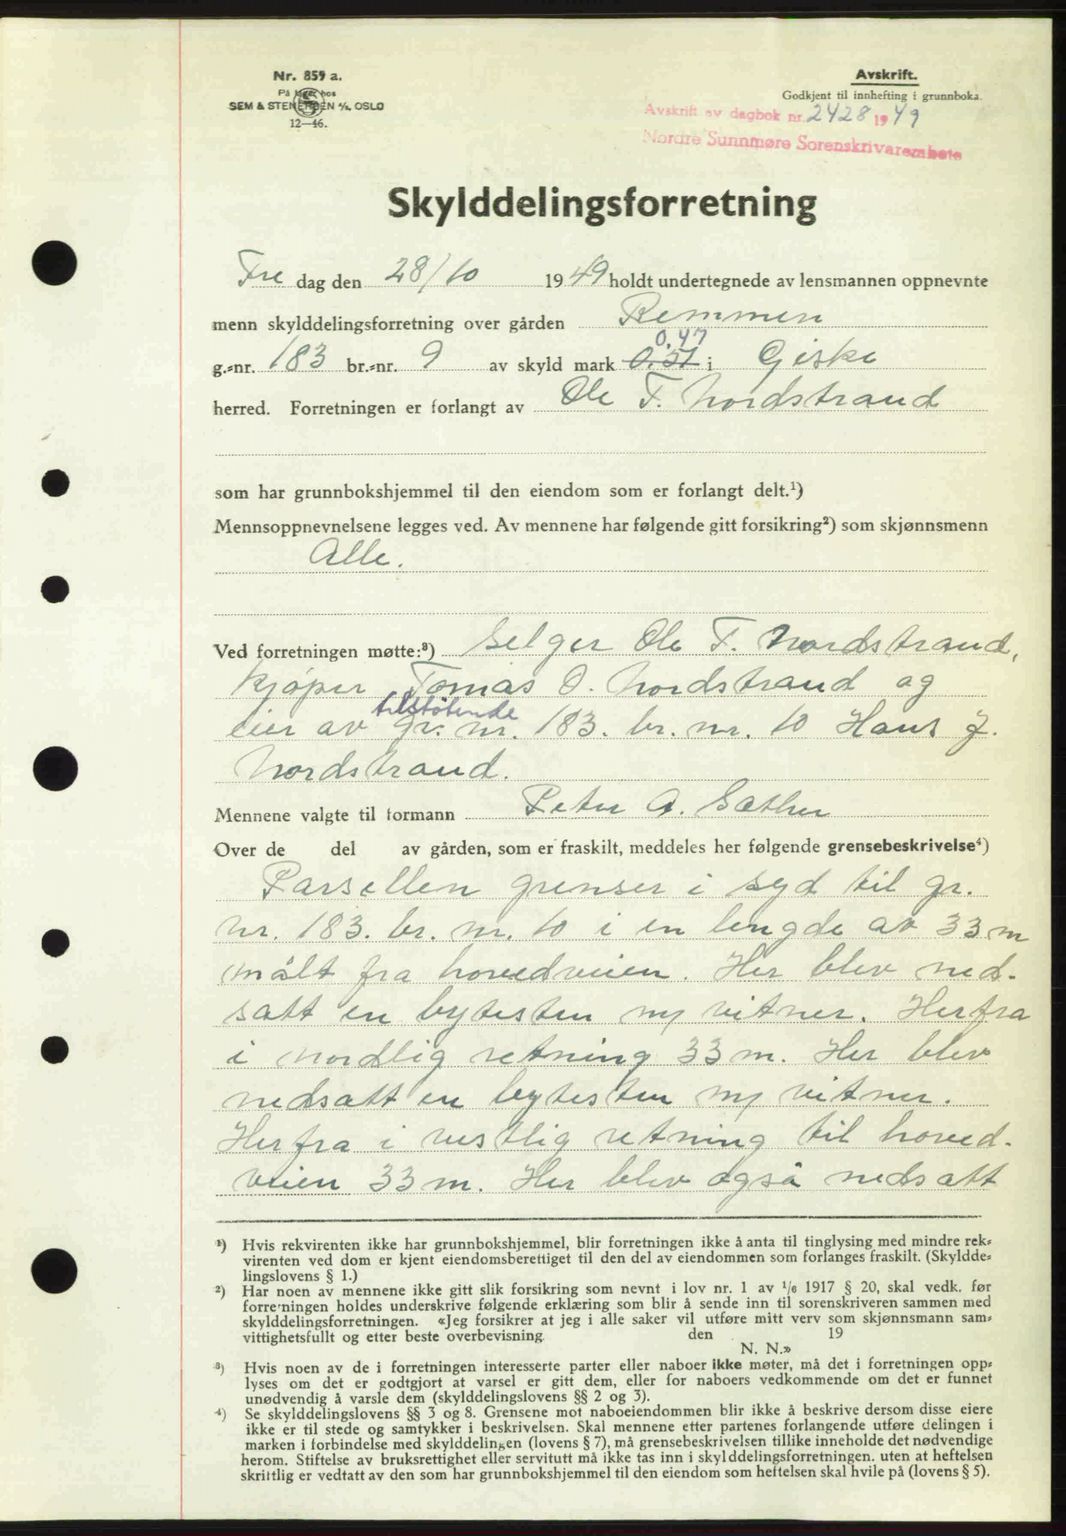 Nr. 859 a.
På lager hos
SEM & STENERSEN A/S, OSLO
12—46.
Avskrift.
Godkjent til innhefting i grunnboka.
Avskrift av dagbok nr. 2428 1949
Nordre Sunnmøre Sorenskrivarembete
Skylddelingsforretning
Fre dag den 28/10 1949 holdt undertegnede av lensmannen oppnevnte
menn skylddelingsforretning over gården Remmen
0,47
g.-nr. 183 br.-nr. 9 av skyld mark 0.37 i Giske
herred. Forretningen er forlangt av Ole F. Nordstrand
som har grunnbokshjemmel til den eiendom som er forlangt delt.¹)
Mennsoppnevnelsene legges ved. Av mennene har følgende gitt forsikring²) som skjønnsmenn
Alle.
Ved forretningen møtte:³) Selger Ole F. Nordstrand,
kjøper Tomas O. Nordstrand og
tilstøtende
eier av gr. nr. 183. br. nr. 10 Hans J.
Nordstrand.
Mennene valgte til formann Peter A. Sæther
Over de del av gården, som er fraskilt, meddeles her følgende grensebeskrivelse⁴)
Parsellen grenser i syd til gr.
nr. 183. br. nr. 10 i en lengde av 33 m
målt fra hovedveien. Her blev ned-
satt en bytesten m/ vitner. Herfra
i nordlig retning 33 m. Her blev
nedsatt en bytesten m/ vitner.
Herfra i vestlig retning til hoved-
veien 33 m. Her blev også nedsatt
¹) Hvis rekvirenten ikke har grunnbokshjemmel, blir forretningen ikke å anta til tinglysing med mindre rek-
virenten ved dom er kjent eiendomsberettiget til den del av eiendommen som forlanges fraskilt. (Skyldde-
lingslovens § 1.)
²) Har noen av mennene ikke gitt slik forsikring som nevnt i lov nr. 1 av 1/6 1917 § 20, skal vedk. før
forretningen holdes underskrive følgende erklæring som blir å sende inn til sorenskriveren sammen med
skylddelingsforretningen. «Jeg forsikrer at jeg i alle saker vil utføre mitt verv som skjønnsmann sam-
vittighetsfullt og etter beste overbevisning. den 19
N. N.»
³) Hvis noen av de i forretningen interesserte parter eller naboer ikke møter, må det i forretningen opp-
lyses om det er godtgjort at varsel er gitt dem, eller for naboers vedkommende om det er funnet
unødvendig å varsle dem (skylddelingslovens §§ 2 og 3).
⁴) Se skylddelingslovens §§ 3 og 8. Grensene mot naboeiendommen blir ikke å beskrive dersom disse eiere
ikke er til stede og samtykker i beskrivelsen. Skal mennene etter partenes forlangende utføre delingen i
marken i forbindelse med skylddelingen (lovens § 7), må grensebeskrivelsen tillike inneholde det nødvendige
herom. Stiftelse av bruksrettighet eller servitutt må ikke tas inn i skylddelingsforretningen. uten at heftelsen
skriftlig er vedtatt av den som har grunnbokshjemmel til den eiendom som heftelsen skal hvile på (lovens § 5).